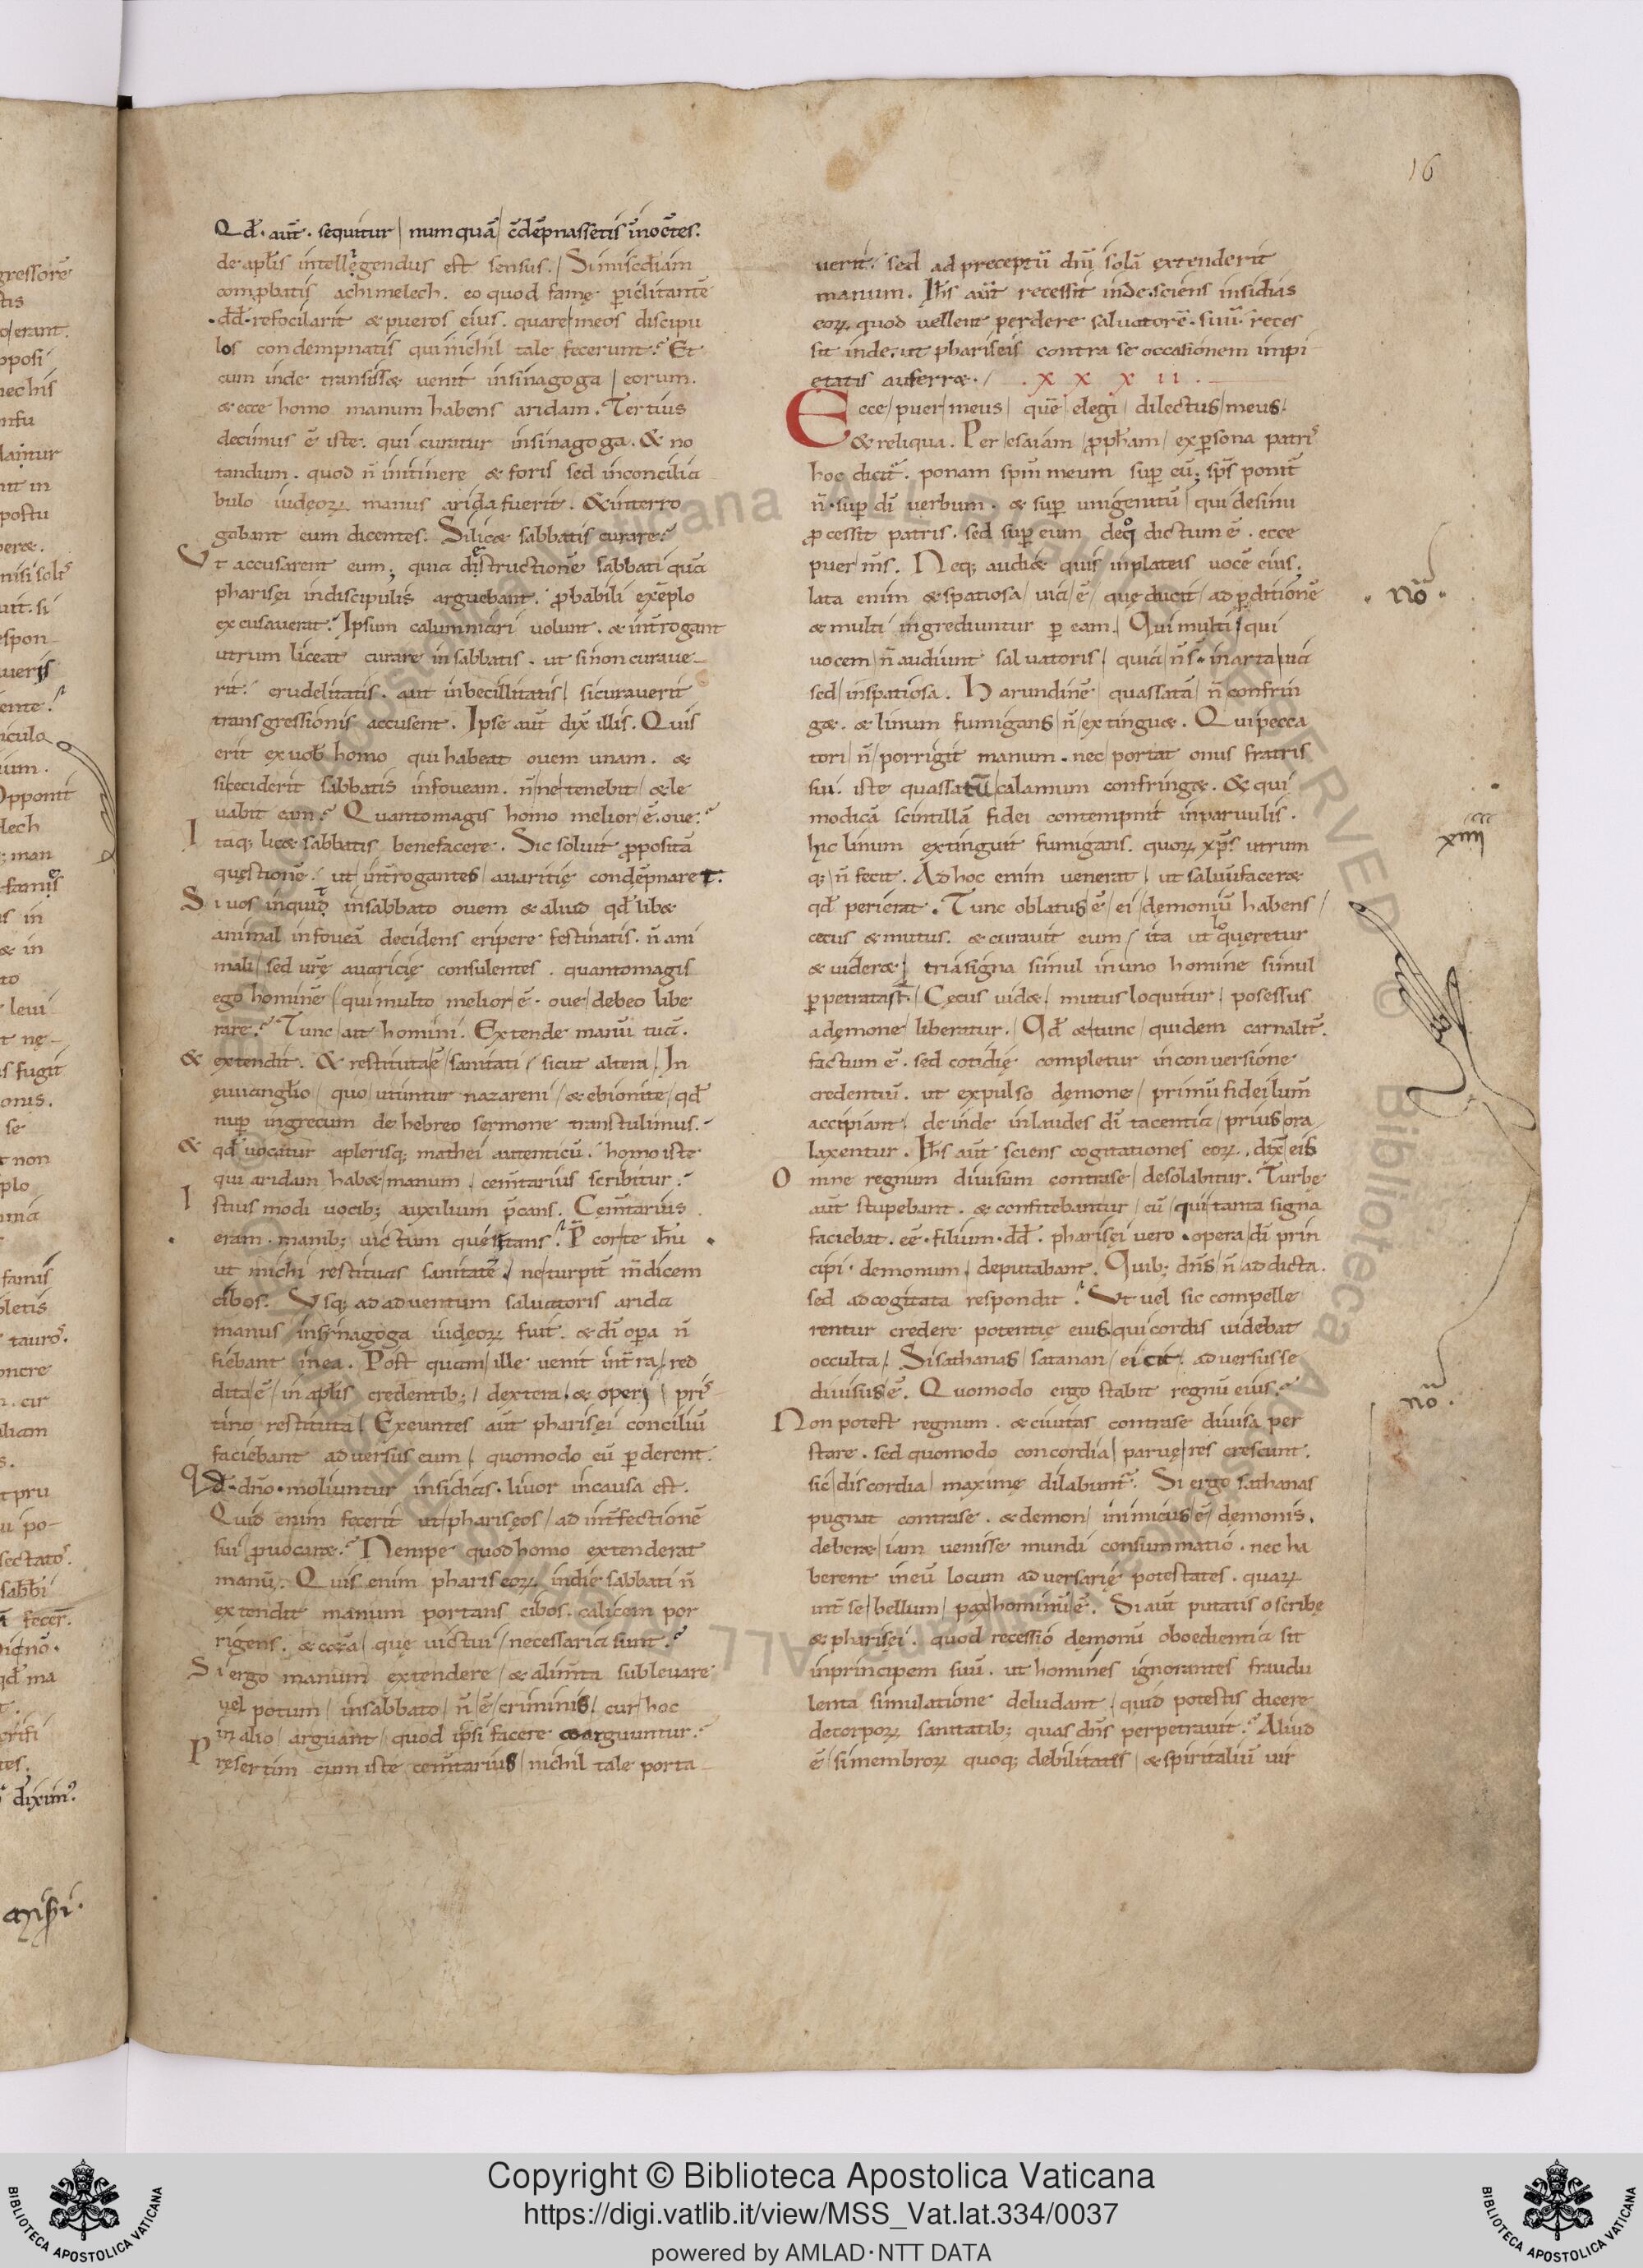 16
Qđ. aut̄. sequitur numquā c̄dēpnassetis inocētes.
de apl̄is intellegendus est sensus. Si misc̄diam
comprobatis achimelech. eo quod famę periclitantē
.dd̄. refocilarit & pueros eius. quare meos discipu
los condempnatis qui nichil tale fecerunt? Et
cum inde transiss& uenit insinagoga eorum.
& ecce homo manum habens aridam. Tertius
decimus ē iste. qui curatur insinagoga. & no
tandum. quod n̄ initinere & foris sed inconcilia
bulo iudęorꝝ manus arida fuerit. & interro
gabant eum dicentes. Si lic& sabbatis curare?
Vt accusarent eum; quia destructionē sabbati quā
pharisęi indiscipulis arguebant. ꝓbabili exēplo
excusauerat. Ipsum calumniari uolunt. & int̄rogant
utrum liceat curare insabbatis. ut sinon curaue-
rit. crudelitatis. aut inbecillitatis si curauerit
transgressionis accusent. Ipse aut̄ dix̄ illis. Quis
erit ex uob̄ homo qui habeat ouem unam. &
si ceciderit sabbatis infoueam. n̄ ne tenebit & le
uabit eam? Quanto magis homo melior ē. oue?
Itaq; lic& sabbatis benefacere. Sic soluit ꝓpositā
quęstionē. ut int̄rogantes auaritię condēpnaret.
Si uos inquid insabbato ouem & aliud qđ lib&
animal infoueā decidens eripere festinatis. n̄ ani
mali sed ur̄ę auaricię consulentes. quanto magis
ego hominē qui multo melior ē. oue debeo libe
rare? Tunc ait homini. Extende manū tuā.
& extendit. & restituta ē sanitati sicut altera. In
ęuuangl̄io quo utuntur nazareni & ebionite qđ
nup̄ ingrecum de hebreo sermone transtulimus.
& qđ uocatur aplerisq; mathei autenticū. homo iste
qui aridam hab& manum cem̄tarius scribitur.
Istius modi uocib; auxilium p̄cans. Cem̄tarius
eram. manib; uictum quęritans. P̄cor te ih̄u
ut michi restituas sanitatē. ne turpit̄ m̄dicem
cibos. Vsq; ad aduentum saluatoris arida
manus insynagoga iudęorꝝ fuit. & dī opera n̄
fiebant in ea. Post quam ille uenit int̄ra. red
dita ē in apl̄is credentib; dextera. & operi pris
tino restituta. Exeuntes aut̄ pharisęi conciliū
faciebant aduersus eum. quomodo eū ꝑderent.
Qđ. dn̄o. moliuntur insidias. liuor incausa est.
Quid enim fecerit ut phariseos ad int̄fectionē
sui prouocar&? Nempe quod homo extenderat
manū. Quis enim phariseorꝝ indie sabbati n̄
extendit manum portans cibos. calicem por
rigens. & cet̄a quę uictui necessaria sunt?
Si ergo manum extendere & alim̄ta subleuare
uel potum insabbato n̄ ē criminis. cur hoc
in alio arguant quod ipsi facere coarguuntur?
Pręsertim cum iste cem̄tarius nichil tale porta-
uerit. sed ad preceptū dn̄i solā extenderit
manum. Ih̄s aut̄ recessit inde. sciens insidias
eorꝝ quod uellent perdere saluatorē. suū. reces
sit inde. ut phariseis contra se occasionem impi
etatis auferr&. . x x x ii .
Ecce puer meus quē elegi dilectus meus.
& reliqua. Per esaiam ꝓph̄am ex ꝑsona patris
hoc dicit̄. ponam spm̄ meum sup̄ eū; sps̄ ponit̄
n̄. sup̄ dī uerbum. & sup̄ unigenitū qui desinu
ꝓcessit patris. sed sup̄ eum deq̊ dictum ē. ecce
puer m̄s. Neq; audi& quis inplateis uocē eius.
lata enim & spatiosa uia ē quę ducit ad ꝑditionē
& multi ingrediuntur ꝑ eam. Qui multi qui
uocem n̄ audiunt saluatoris quia n̄ s̄. in arta uia
sed inspatiosa. Harundinē quassatā n̄ confrin
g&. & linum fumigans n̄ extingu&. Qui pecca
tori n̄ porrigit manum. nec portat onus fratris
sui. iste quassatū calamum confring&. & qui
modicā scintillā fidei contempnit inparuulis.
hic linum extinguit fumigans. quorꝝ xp̄s utrum
q; n̄ fecit. Ad hoc enim uenerat ut saluū facer&
qđ perierat. Tunc oblatus ē ei dęmoniū habens
cecus & mutus. & curauit eum ita ut loqueretur
& uider&. tria signa simul in uno homine simul
ꝑpetrata st̄. Cęcus uid& mutus loquitur posessus
adęmone liberatur. Qđ & tunc quidem carnalit̄.
factum ē. sed cotidię completur inconuersione
credentiū. ut expulso dęmone primū fidei lum̄
accipiant. deinde inlaudes dī tacentia prius ora
laxentur. Ih̄s aut̄ sciens cogitationes eorꝝ. dix̄ eis
Omne regnum diuisum contra se desolabitur. Turbę
aut̄ stupebant. & confitebantur cū qui tanta signa
faciebat. eē. filium. dd̄. pharisęi uero. opera dī prin
cipi. demonum deputabant. Quib; dn̄s n̄ ad dicta.
sed ad cogitata respondit. Vt uel sic compelle
rentur credere potentię eius. qui cordis uidebat
occulta. Si sathanas satanan eicit. aduersus se
diuisus ē. Quomodo ergo stabit regnū eius?
Non potest regnum. & ciuitas contra se diuisa per
stare. sed quomodo concordia paruę res crescunt.
sic discordia maxime dilabunt̄. Si ergo sathanas
pugnat contra se. & demon inimicus ē demonis.
deber& iam uenisse mundi consummatio. nec ha
berent in eū locum aduersarię potestates. quarꝝ
int̄ se bellum pax hominū ē. Si aut̄ putatis o scribę
& pharisei. quod recessio demonū oboedientia sit
inprincipem suū. ut homines ignorantes fraudu
lenta simulatione deludant quid potestis dicere
decorporꝝ sanitatib; quas dn̄s perpetrauit? Aliud
ē si membrorꝝ quoq; debilitatis & spiritaliū uir
.nō.
xiiii
nō.
Copyright © Biblioteca Apostolica Vaticana
https://digi.vatlib.it/view/MSS_Vat.lat.334/0037
powered by AMLAD·NTT DATA
BIBLIOTECA APOSTOLICA VATICANA
BIBLIOTECA APOSTOLICA VATICANA